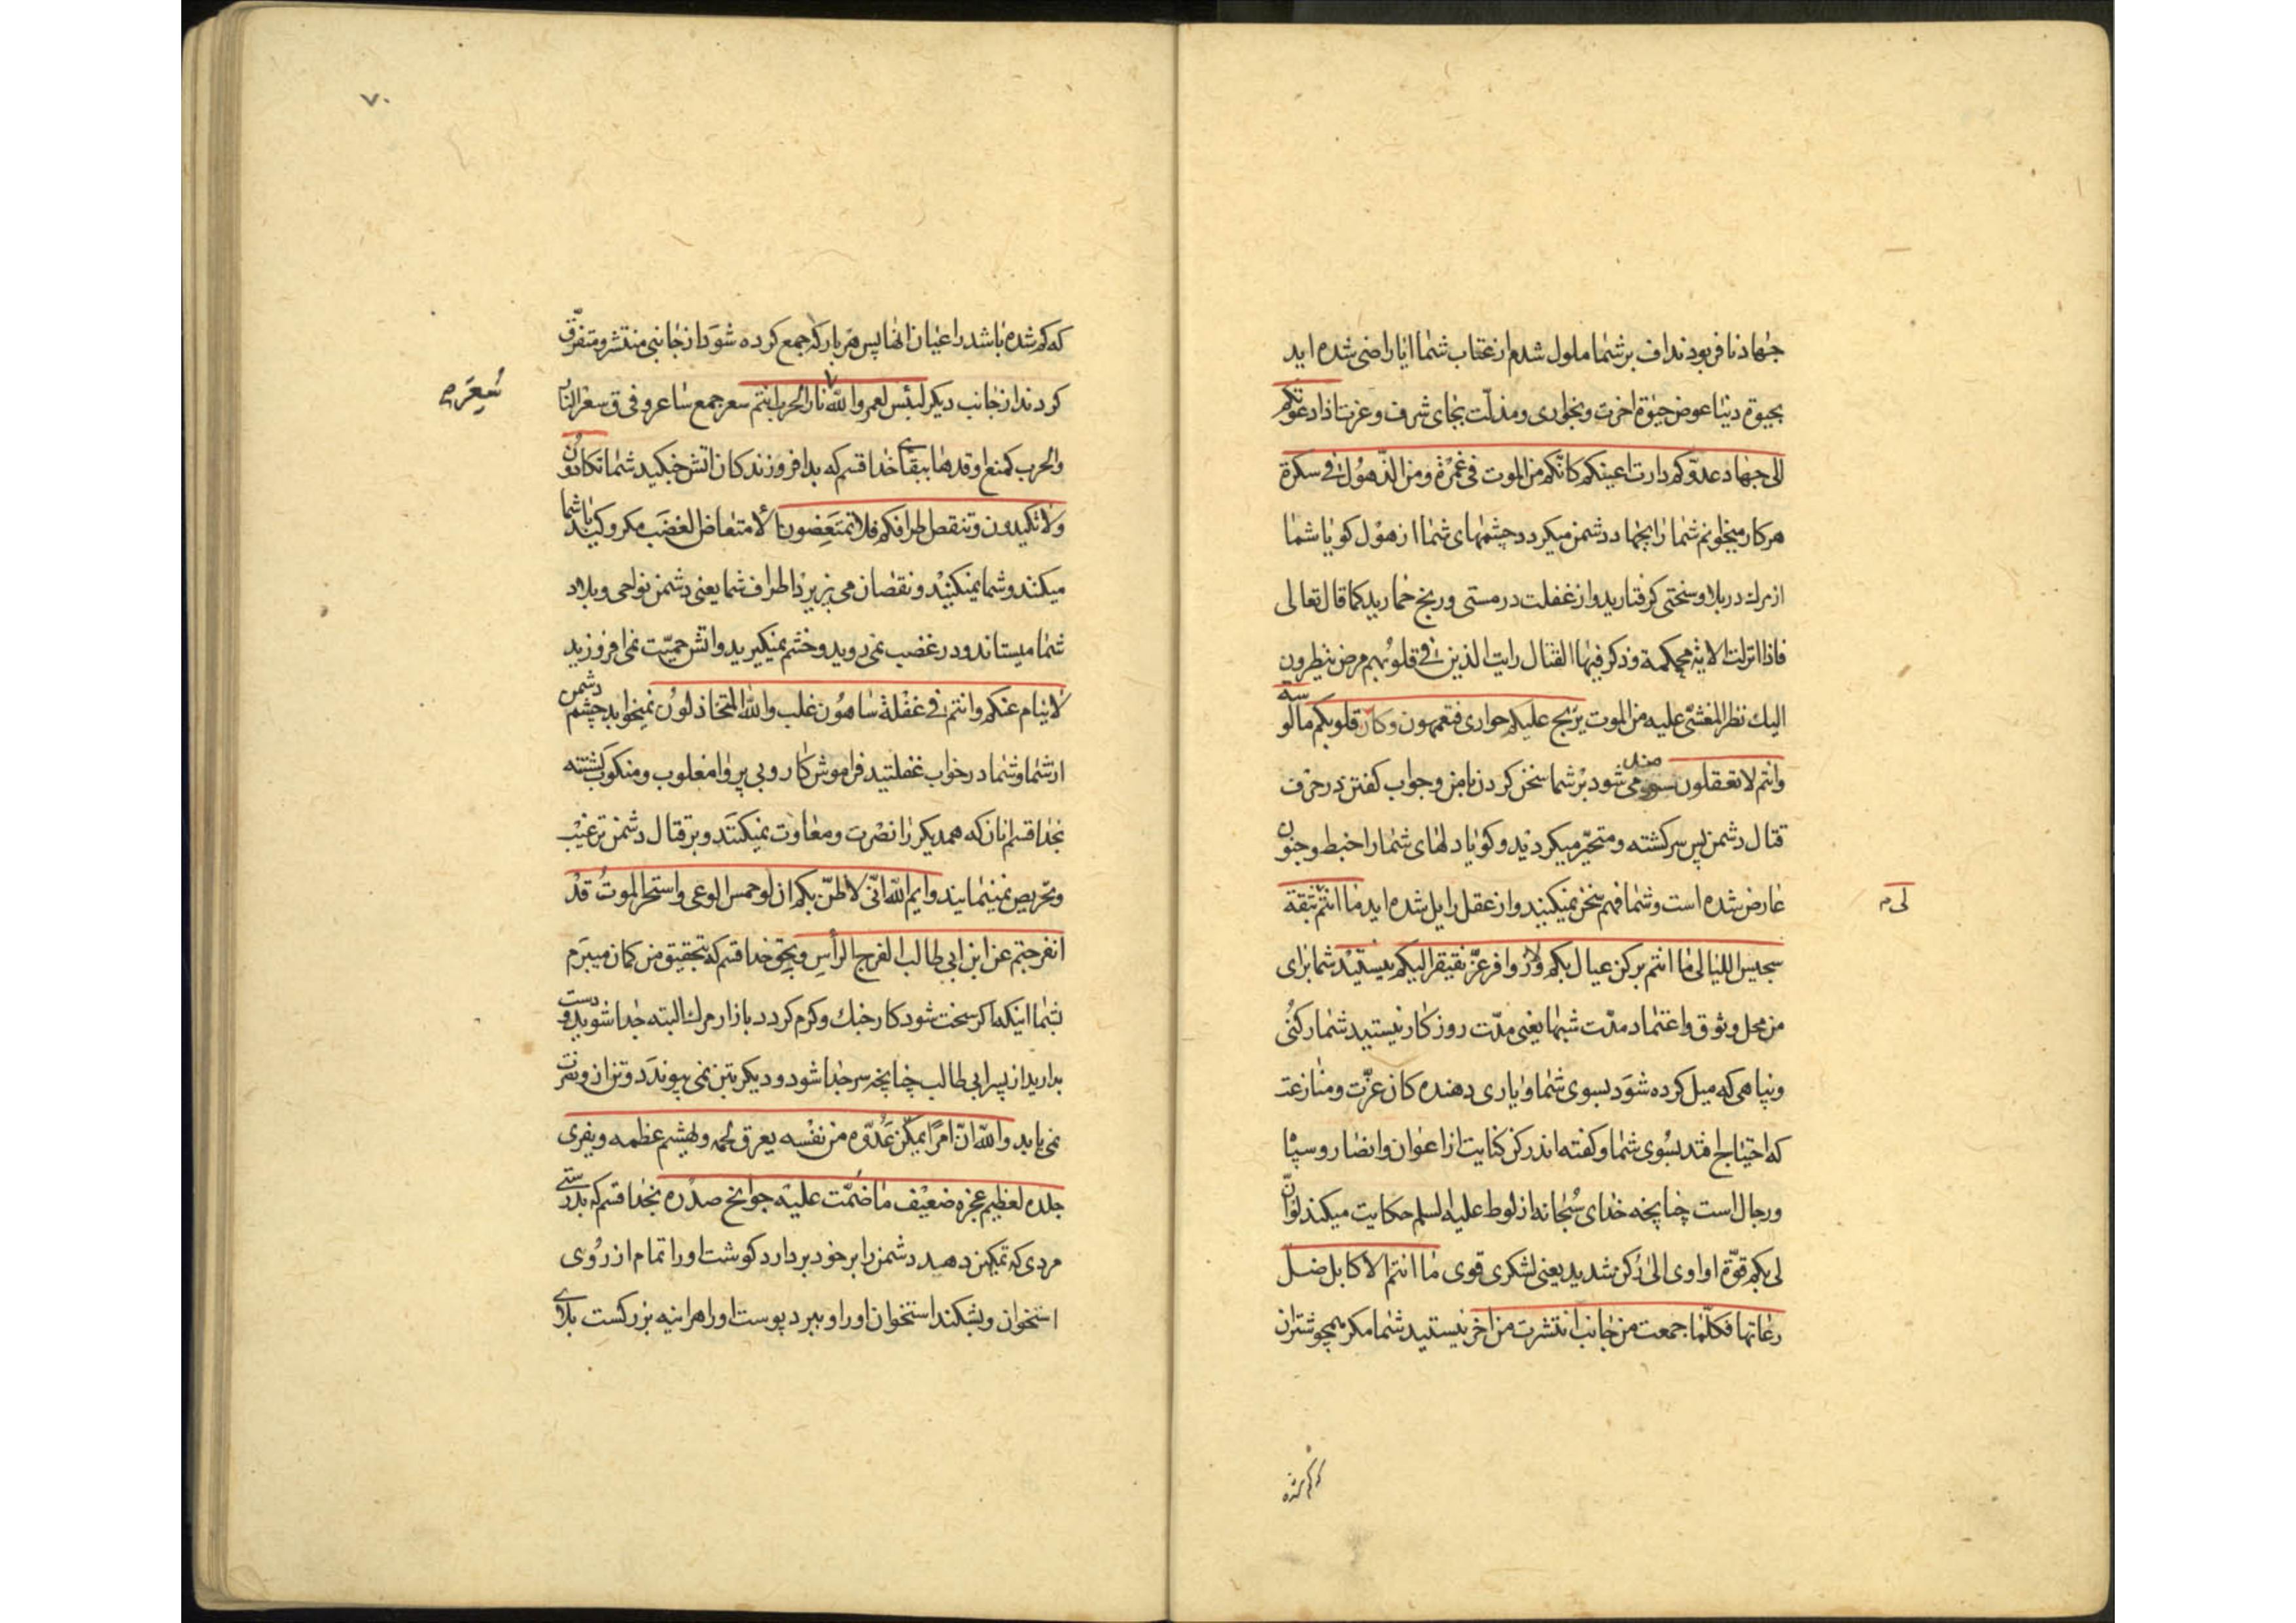 جهاد نافر بودند اف بر شما ملول شدم از عتاب شما ایا راضی شده اید
بحیوة دنیا عوض حیوة اخرت و بخواری و مذلت بجای شرف و عزت اذا دعوتکم
الی جهاد عدوکم دارت اعینکم کانکم من الموت فی غمرة و من الذهول فی سکرة
هر کار میخوانم شما را بجهاد دشمن میکردد چشمهای شما از هول کویا شما
از مرك در بلا و سختی کرفتارید و از غفلت در مستی و رنج خمارید کما قال تعالی
فاذا انزلت الایة محکمة و ذکر فیها القتال رایت الذین فی قلوبهم مرض ینظرون
الیك نظر المغشی علیه من الموت یرتج علیکم حواری فتعمهون و کان قلوبکم مالوسة
وانتم لا تعقلون می شود بر شما سخن کردن با من و جواب کفتن در حرف
قتال دشمن پس سرکشته و متحیر میکردید و کویا دلهای شما را خبط و جنون
عارض شده است و شما فهم سخن نمیکنید و از عقل زایل شده اید ما انتم بثقة
لی م
سجیس اللیالی ما انتم برکن یمال بکم ولا زوافر عز یفتقر الیکم نیستید شما برای
من محل وثوق و اعتماد مدت شبها یعنی مدت روزکار نیستید شما رکنی
و پناهی که میل کرده شود بسوی شما و یاری دهنده کان عزت و منازعت
که احتیاج افتد بسوی شما و کفته اند رکن کنایت از اعوان و انصار و سپاه
و رجال است چنانچه خدای سبحانه از لوط علیه السلم حکایت میکند لو ان
لی بکم قوة او اوی الی رکن شدید یعنی لشکری قوی ما انتم الا کابل ضل
رعاتها فکلما جمعت من جانب انتشرت من اخر نیستید شما مکر همچو شتران
که کم شده
٧٠
که کم شده باشد راعیان انها پس هر بار که جمع کرده شود از جانبی منتشر و متفرق
کردند از جانب دیکر لبئس لعمر والله نار الحرب انتم سعر جمع ساعر و فی ق سعر النار
سعر م
والحرب کمنع اوقدها ببقای خدا قسم که بد افروزندکان اتش جنکید شما تکادون
ولا تکیدون و تنقص اطرافکم فلا تمتعضون الامتعاض الغضب مکر و کید با شما
میکنند و شما نمیکنید و نقصان می پزیرد اطراف شما یعنی دشمن نواحی و بلاد
شما میستاند و در غضب نمی روید و خشم نمیکیرید و اتش حمیت نمی افروزید
لا ینام عنکم وانتم فی غفلة ساهون غلب والله المتخاذلون نمیخوابد چشم دشمن
از شما و شما در خواب غفلتید فراموش کار و بی پروا مغلوب و منکوب کشته
بخدا قسم انان که همدیکر را نصرت و معاونت نمیکنند و بر قتال دشمن ترغیب
و تحریص نمینمایند و ایم الله انی لاظن بکم ان لو حمس الوغی و استحر الموت قد
انفرجتم عن ابن ابی طالب انفراج الراس و بحق خدا قسم که بتحقیق من کمان میبرم
بشما اینکه اکر سخت شود کار جنك و کرم کردد بازار مرك البته جدا شوید و دست
بدارید از پسر ابی طالب چنانچه سر جدا شود و دیکر بتن نمی پیوندد و تن از و نفرت
نمی یابد والله ان امرا یمکن عدوه من نفسه یعرق لحمه و یهشم عظمه و یفری
جلده لعظیم عجزه ضعیف ما ضمت علیه جوانح صدره بخدا قسم که بدرستی
مردی که تمکین دهد دشمن را بر خود بردارد کوشت او را تمام از روی
استخوان و بشکند استخوان او را و ببرد پوست او را هراینه بزرکست بلای